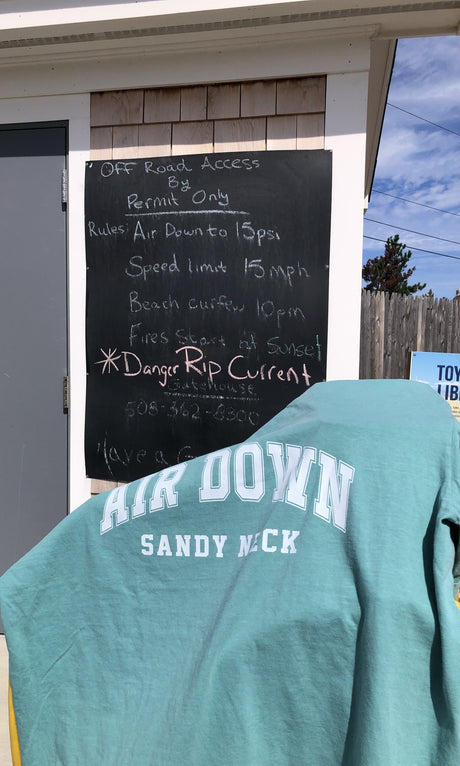 Off Road Access
By
Permit Only
Rules: Air Down to 15psi
Speed limit 15mph
Beach curfew 10pm
Fires Start at Sunset
*Danger Rip Current
Gatehouse
508-362-8300
Have a G
AIR DOWN
SANDY NECK
TOY
LIB